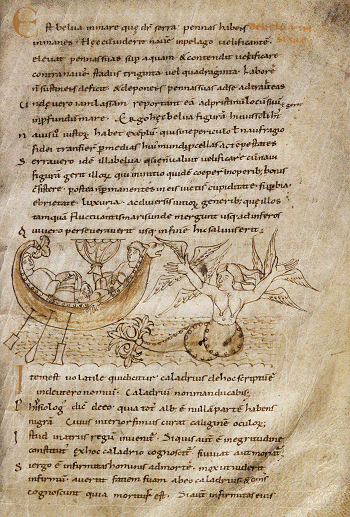 Est belua in mare que dr̄ serra pennas habens
inmanes. Hec cū uiderit nauē in pelago uelificantē
eleuat pennas suas sup aquam & contendit uelificare
contra nauem stadiis triginta uel quadraginta. & laborē
n̄ sustinens deficit & deponens pennas suas ad se adtrahit eas
Unde uero iam lassam reportant eā ad pristinū locū suū
in pfundū mare. Ergo hec belua figurā huius s̄cli h̄t
Naues u͛ iustorꝝ habet exeplū qui sine periculo & naufragio
fidei transiert p medias huius mundi pcellas ac tēpestates
Serra uero id ē illa belua que n̄ ualuit uelificare cū naui
figurā gerit illorꝝ qui in initio quidē coeper̄ in operib; bonis
c̄sistere postea n̄ pmanentes in eis uicti cupiditate supbia
ebrietate luxuria ac diuersis uitiorꝝ generib; que illos
tamquā fluctuantis maris unde mergunt usq; ad inferos
Qui uero perseuerauerit usq; in fine hic saluus erit.
Item est uolatile quod dicitur caladrius de hoc scriptū ē
in deuteronomio. Caladriū non manducabis;
Phisiolog' dic̄ de eo quia tot' alb' ē nullā parte habens
nigrā. Cuius interior fimus curat caliginē oculorꝝ;
Istud in atriis regū inuenit'. Si quis aut̄ ē in egritudine
constitut' ex hoc caladrio cognoscit' si uiuat aut moriat'
Si ergo ē infirmitas hominis ad morte mox ut uiderit
infirmū auertit faciem suam ab eo caladrius & oms
cognoscunt quia moritur' est. Si aut̄ infirmitas eius